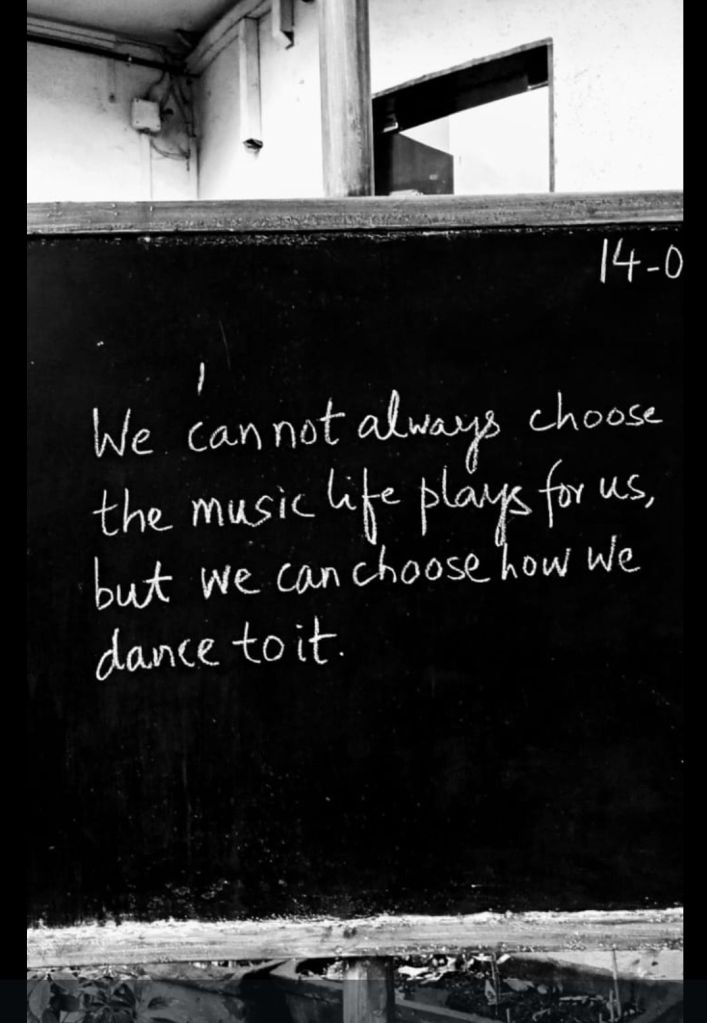 14-0
We cannot always choose
the music life plays for us,
but we can choose how we
dance to it.